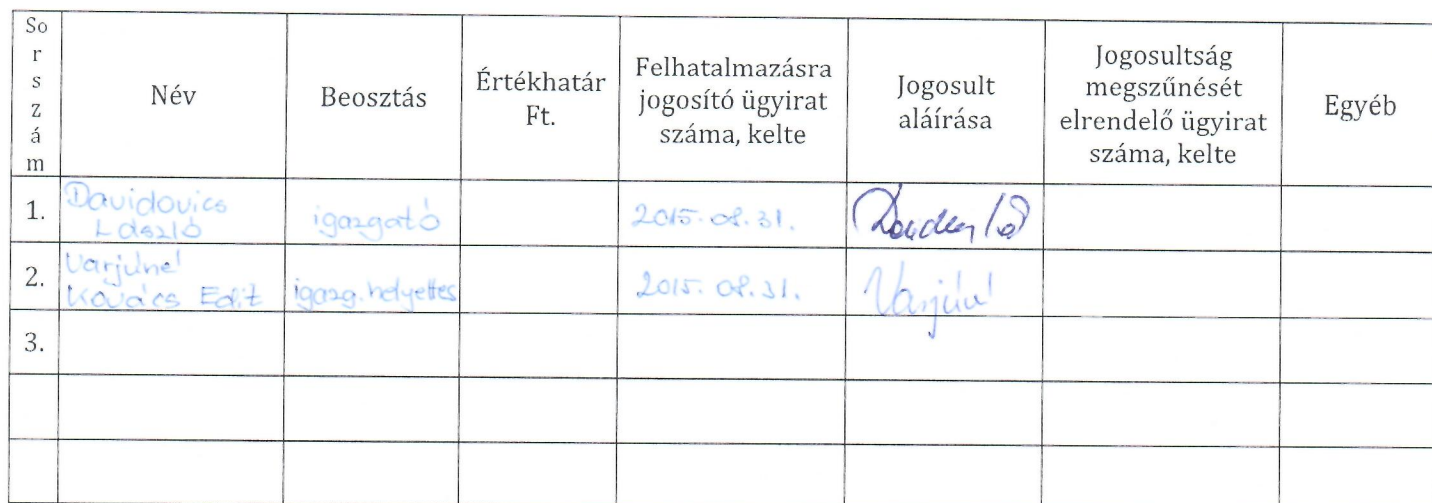 So
r
s
z
á
m
Név
Beosztás
Értékhatár
Ft.
Felhatalmazásra
jogosító ügyirat
száma, kelte
Jogosult
aláírása
Jogosultság
megszűnését
elrendelő ügyirat
száma, kelte
Egyéb
1.
Davidovics
László
igazgató
2015.08.31.
2.
Varjúné
Kovács Edit
igazg.helyettes
2015.08.31.
Varjúné
3.